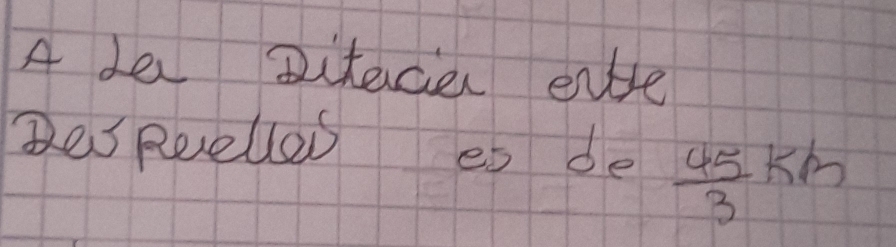 A la Ditacia entre
Das Puellas es de 45/3 Km